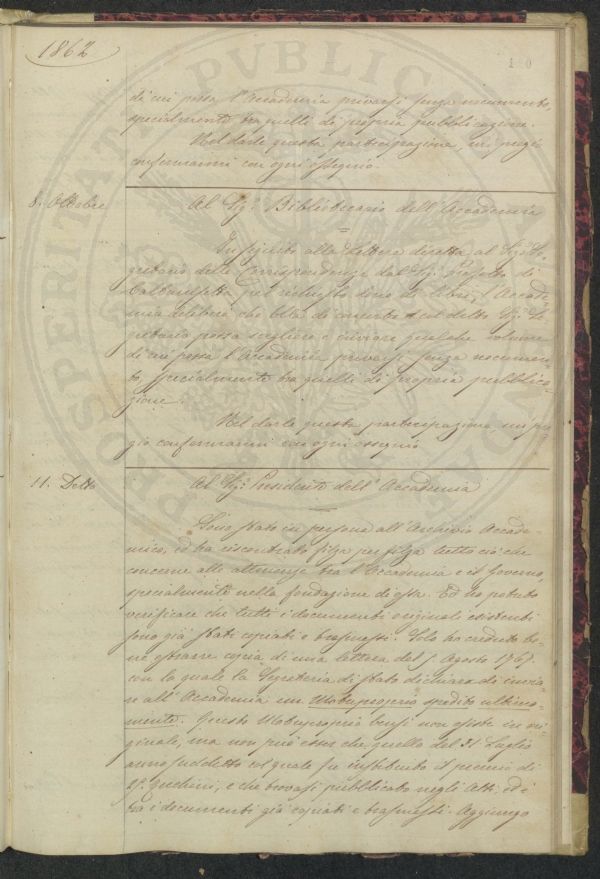 1862
di cui possa l'Accademia privarsi senza nocumento,
specialmente tra quelli di propria pubblicazione.
Nel darle questa partecipazione mi pregio
confermarmi con ogni ossequio.
8. Ottobre
Al Sig.r Bibliotecario dell'Accademia
In seguito alla Lettera diretta al Sig.r Se-
gretario delle Corrispondenze dal Sig. Prefetto di
Caltanissetta per richiesta dono di libri, l'Accade-
mia deliberò che Ella di concerto col detto Sig. Se-
gretario possa scegliere e inviare qualche volume
di cui possa l'Accademia privarsi senza nocumen-
to, specialmente tra quelli di propria pubblica-
zione.
Nel darle questa partecipazione mi pre-
gio confermarmi con ogni ossequio
11. Detto
Al Sig. Presidente dell'Accademia
Sono stato in persona all'Archivio Accade-
mico, ed ho riscontrato filza per filza tutto ciò che
concerne alle attinenze tra l'Accademia e il Governo,
specialmente nella fondazione di essa. Ed ho potuto
verificare che tutti i documenti originali esistenti
sono già stati copiati e trasmessi. Solo ho creduto be-
ne estrarre copia di una lettera del 5 Agosto 1767.
con la quale la Segreteria di Stato dichiara di invia-
re all'Accademia un Motuproprio spedito ultima-
mente. Questo Motuproprio bensì non esiste in ori-
ginale, ma non può esser che quello del 31 Luglio
anno suddetto col quale fu instituito il premio di
Zecchini, e che trovasi pubblicato negli Atti ed è
tra i documenti già copiati e trasmessi. Aggiungo
PROSPERITATI PUBLICAE